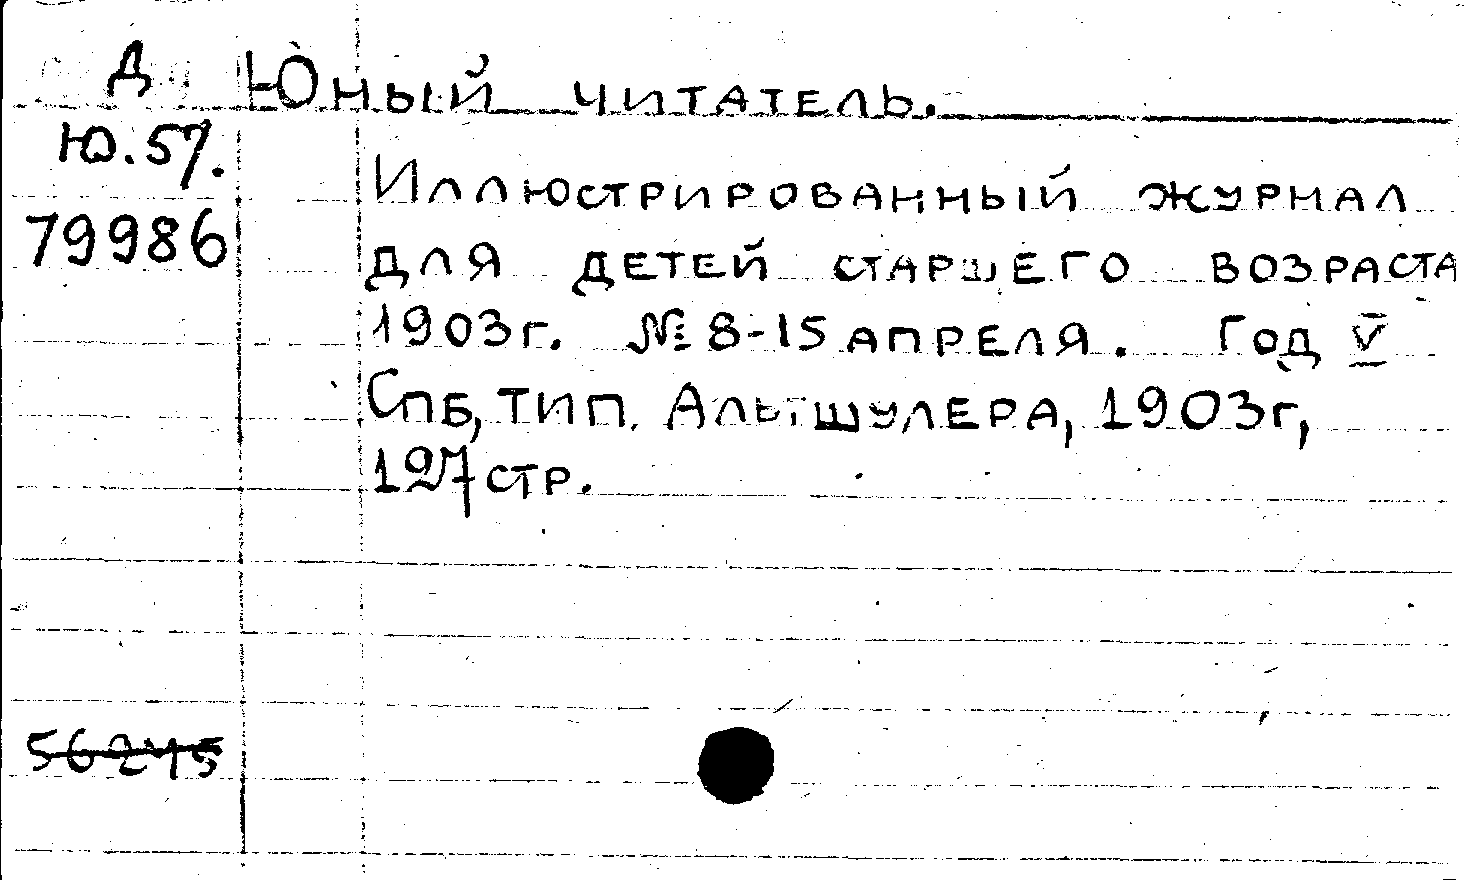 Д
Юный читатель.
Ю.57.
79986
Иллюстрированный журнал
для детей старшего возраста
1903г. № 8-15 апреля. Год V
Спб, тип. Альтшулера, 1903г,
127 стр.
56245